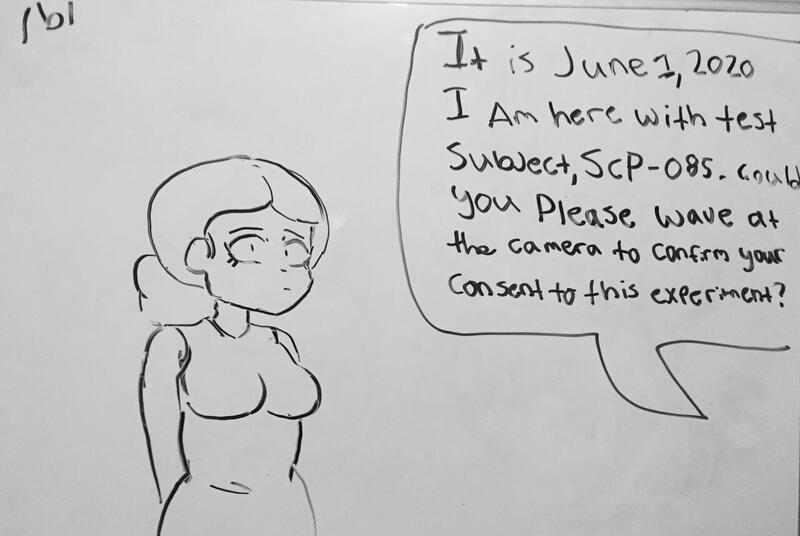 /b/
It is June 1, 2020
I Am here with test
Subject, SCP-085. Could
you Please wave at
the camera to confirm your
Consent to this experiment?